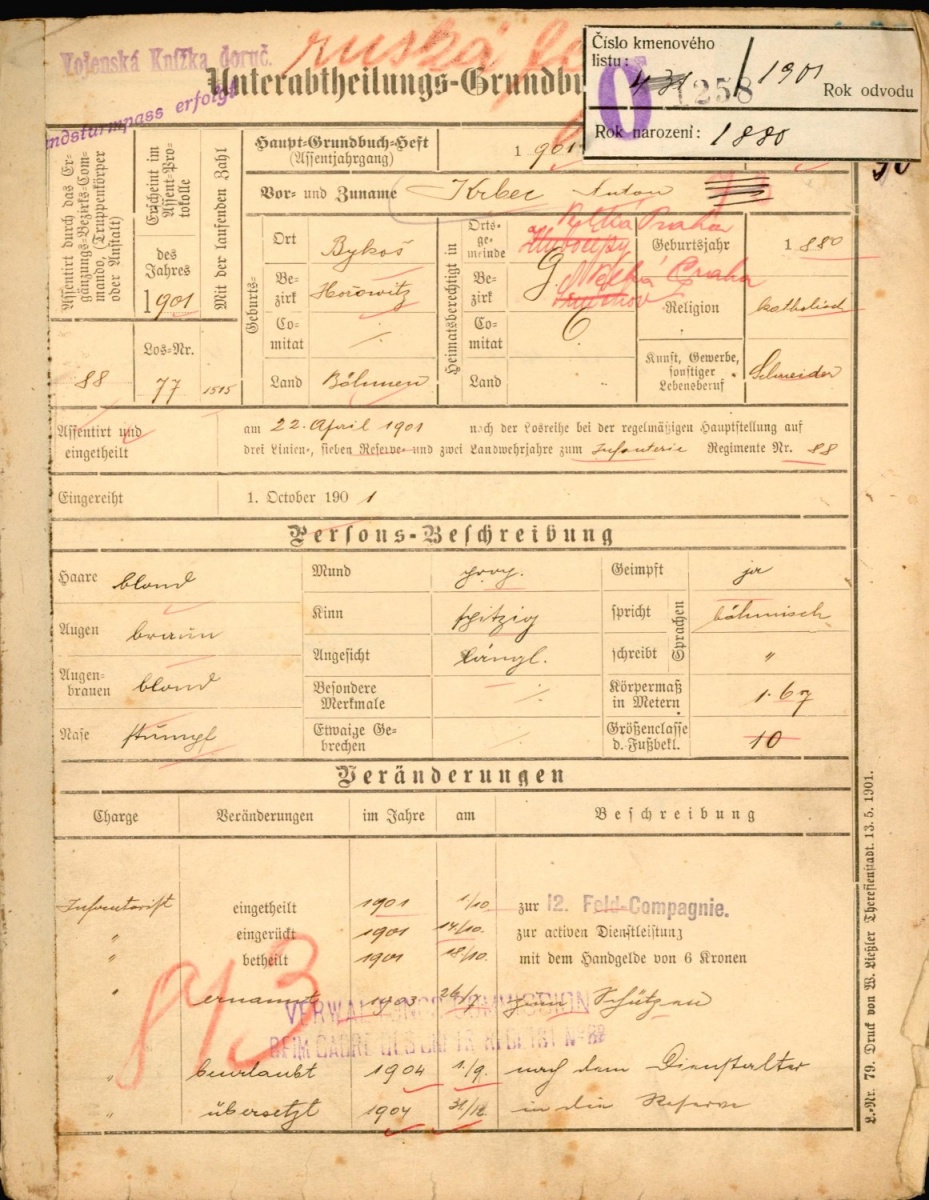 Vojenská Knížka doruč.
ruská
Unterabtheilungs-Grundbu
Landsturmpass erfolgt
Číslo kmenového
listu: 1258 / 1901
Rok odvodu
0
Rok narození: 1880
Assentirt durch das Ergänzungs-Bezirks-Commando, Truppenkörper oder Anstalt)
88
Erscheint im Assent-Protokolle
des Jahres
1901
Los-Nr.
77
Mit der laufenden Zahl
1515
Haupt-Grundbuch-Heft
(Assentjahrgang)
1 901
Vor- und Zuname Krbec Anton
Geburts-
Ort Bykoš
Bezirk Hořowitz
Comitat ·/·
Land Böhmen
Heimatsberechtigt in
Ortsgemeinde Praha
Bezirk Praha
Comitat
Land
Geburtsjahr 1 880
Religion katholisch
Kunst, Gewerbe, sonstiger Lebensberuf Schneider
Assentirt und eingetheilt
am 22. April 1901 nach der Losreihe bei der regelmäßigen Hauptstellung auf
drei Linien-, sieben Reserve- und zwei Landwehrjahre zum Infanterie Regimente Nr. 88
Eingereiht 1. October 190 1
Persons-Beschreibung
Haare blond
Mund prop.
Geimpft ja
Augen braun
Kinn spitzig
spricht böhmisch
Sprachen
Angesicht längl.
schreibt "
Augenbrauen blond
Besondere Merkmale ·/·
Körpermaß in Metern 1·67
Nase stumpf
Etwaige Gebrechen ·/·
Größenclasse d. Fußbekl. 10
Veränderungen
Charge Veränderungen im Jahre am Beschreibung
Infanterist eingetheilt 1901 1/10 zur 12. Feld-Compagnie.
" eingerückt 1901 14/10. zur activen Dienstleistung
" betheilt 1901 18/10. mit dem Handgelde von 6 Kronen
" ernannt 1903 26/7 zum Schützen
VERWALTUNGS-COMMISSION
893
" beurlaubt 1904 1./9. nach dem Dienstalter
" übersetzt 1904 31/12 in die Reserve
L.-Nr. 79. Druck von W. Ließler Theresienstadt. 13. 5. 1901.